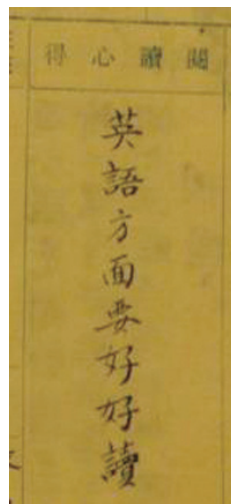 閱讀心得
英語方面要好好讀